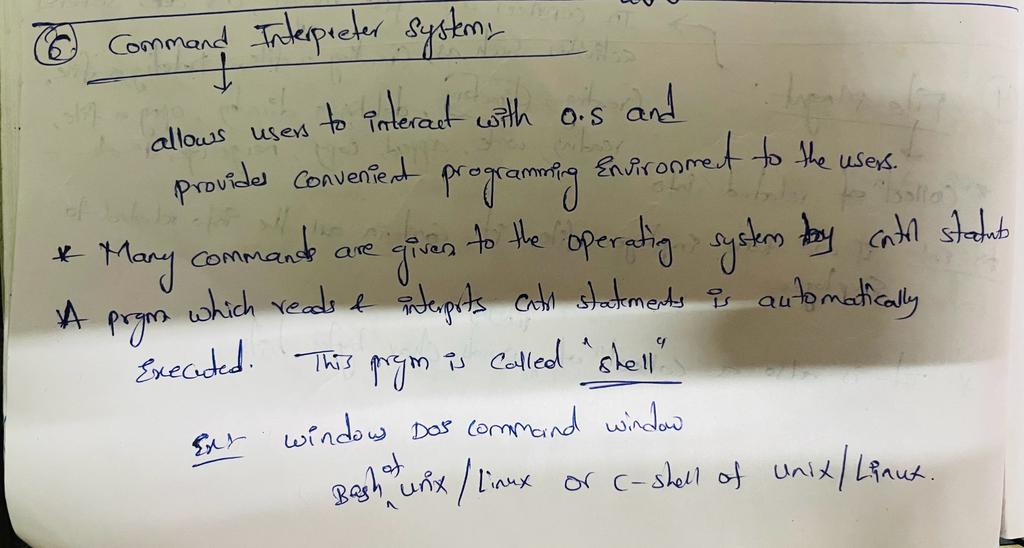 ⑥ Command Interpreter System:
allows users to interact with O.S and
provides convenient programming Environmet to the users.
* Many commands are given to the operatig system by cntrl statmts
* A prgm which reads & interprts cntrl statements is automatically
Executed. This prgm is called "shell"
Ex:- window DOS command window
Bash of unix / Linux or C-shell of unix / Linux.